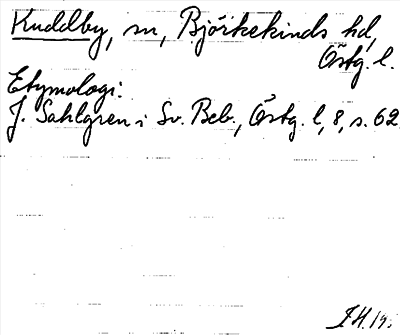 Kuddby, sn, Björkekinds hd,
Östg. l.
Etymologi:
J. Sahlgren i Sv. Beb., Östg. l, 8, s. 62